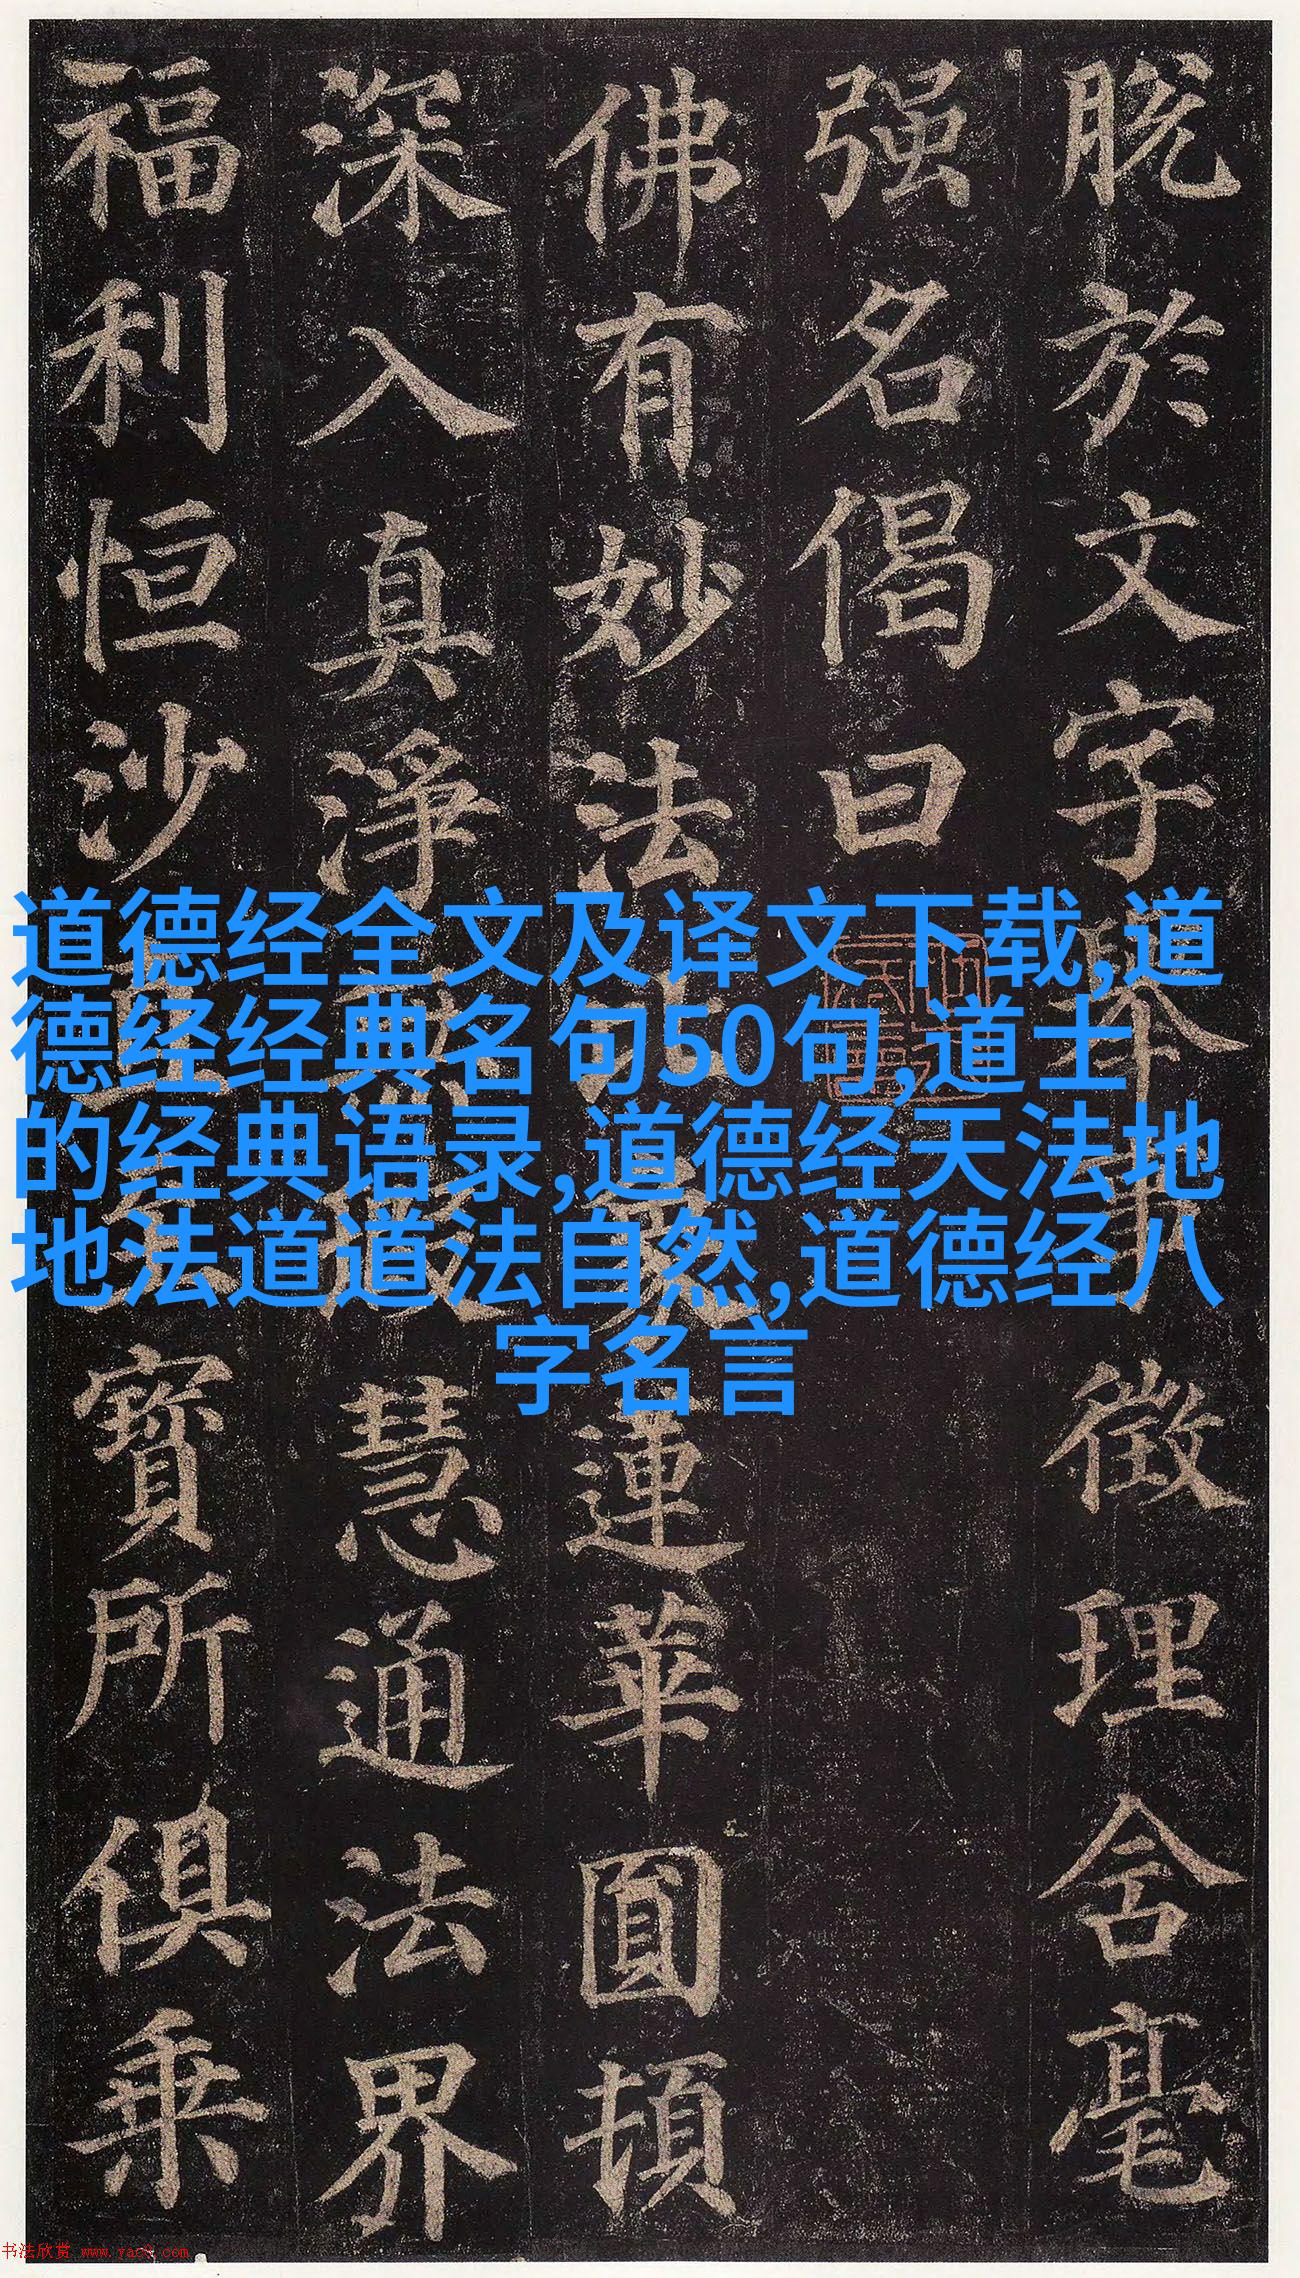 脱於文字舉徵理含毫
强名偈曰
佛有妙法蓮華圓頓
深入真淨慧通法界
福利恒沙寶所俱乗
道德经全文及译文下载,道
德经经典名句50句,道士
的经典语录,道德经天法地
地法道道法自然,道德经八
字名言
书法欣赏 www.yac8.com